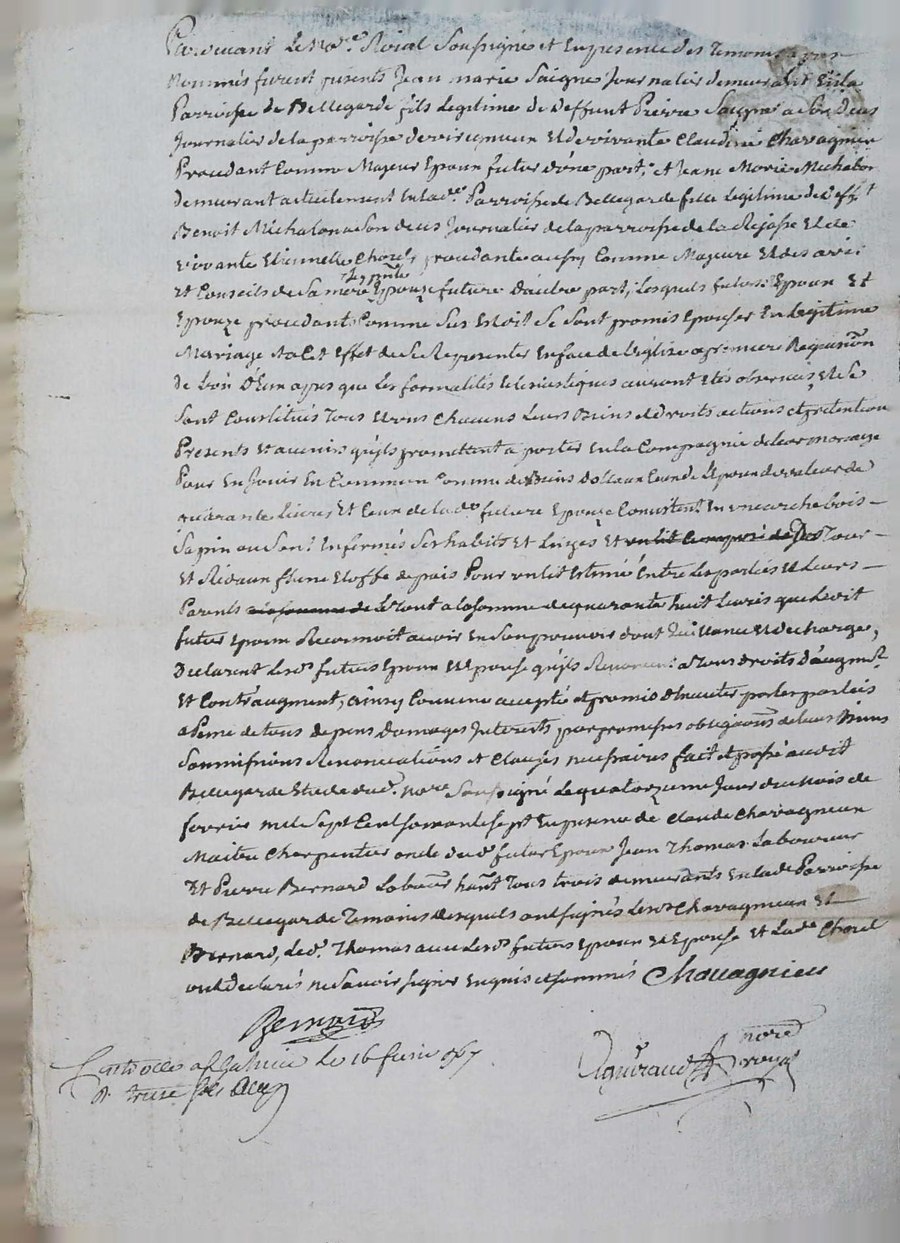 Par devant Le No.re Roial Soussigné et En presence des Temoins apres
Nommés furent presents Jean marie Saigne Journalier demeurant En la
Parroisse de Bellegarde fils Legitime de deffunt Pierre Saigne a Son deces
Journalier de la parroisse de viricigneux Et de vivante Claudine Chavagnieu
Procedant Comme Majeur Epoux futur d'une part; et Jeane Marie Michalon
demeurant actuelement En lad.e Parroisse de Bellegarde fille Legitime de deff.t
Benoit Michalon a Son deces Journalier de la parroisse de la Rajasse Et de
vivante Etiennette Chorel procedante aussy Comme Majeure Et des avis
Et Conseils de Sa mere Epouze future d'autre part; Lesquels futurs Epoux Et
Epouze procedants Comme Sus Est dit Se Sont promis Epouser En Legitime
Mariage et a Cet Effet de Se Representer En face de L'église a premiere Requisi.on
de L'un D'Eux apres que Les formalités Eclesiastiques auront Etés observeés Et Se
Sont Constitués Tous Et uns Chacuns Leurs Biens et droits actions et pretentions
Presents Et avenirs qu'ils promettent a porter En la Compagnie de leur mariage
Pour En Jouir En Commun Comme de Biens Ceux de L'Epoux de valeur de
quarante Livres, Et Ceux de lad.e future Epouze Consistent En une arche bois
Sapin En fermés Ses habits Et Linges Et un lit composé de Tour
Et Rideaux d'une Etoffe de pais Pour un lit Estimé Entre Les parties Et Leurs
Parents Le Tout a la somme de quarante huit Livres que Ledit
futur Epoux Reconnoit avoir En Son pouvoir dont quittance Et decharge,
Declarent Lesd. futurs Epoux Et Epouse qu'ils Renoncent a Tous droits d'augm.t
Et Contr'augment, ainsy Convenu accepté et promis Executer par les parties
a Peine de tous depens domages Interests par promesses obliga.ons de leurs Biens
Soumissions Renonciations et Clauses necessaires fait et passé audit
Bellegarde Etude dud. no.re Soussigné Le quatorzieme Jour du Mois de
fevrier mil Sept Cent soixante Sept En presence de Claude Chavagnieux
Maitre Charpentier oncle dud. futur Epoux Jean Thomas Laboureur
Et Pierre Bernard Labour hant Tous trois demeurants En lad.e Parroisse
de Bellegarde Temoins desquels ont signés Lesd. Chavagneux Et
Bernard, Led. Thomas avec Lesd. futurs Epoux Et Epouse Et Lad.e Chorel
ont declarés ne Savoir signer Enquis et sommés Chauagnieu
Bernard
no.re royal
Controllé a le 16 fevrier 1767
R. treize sols